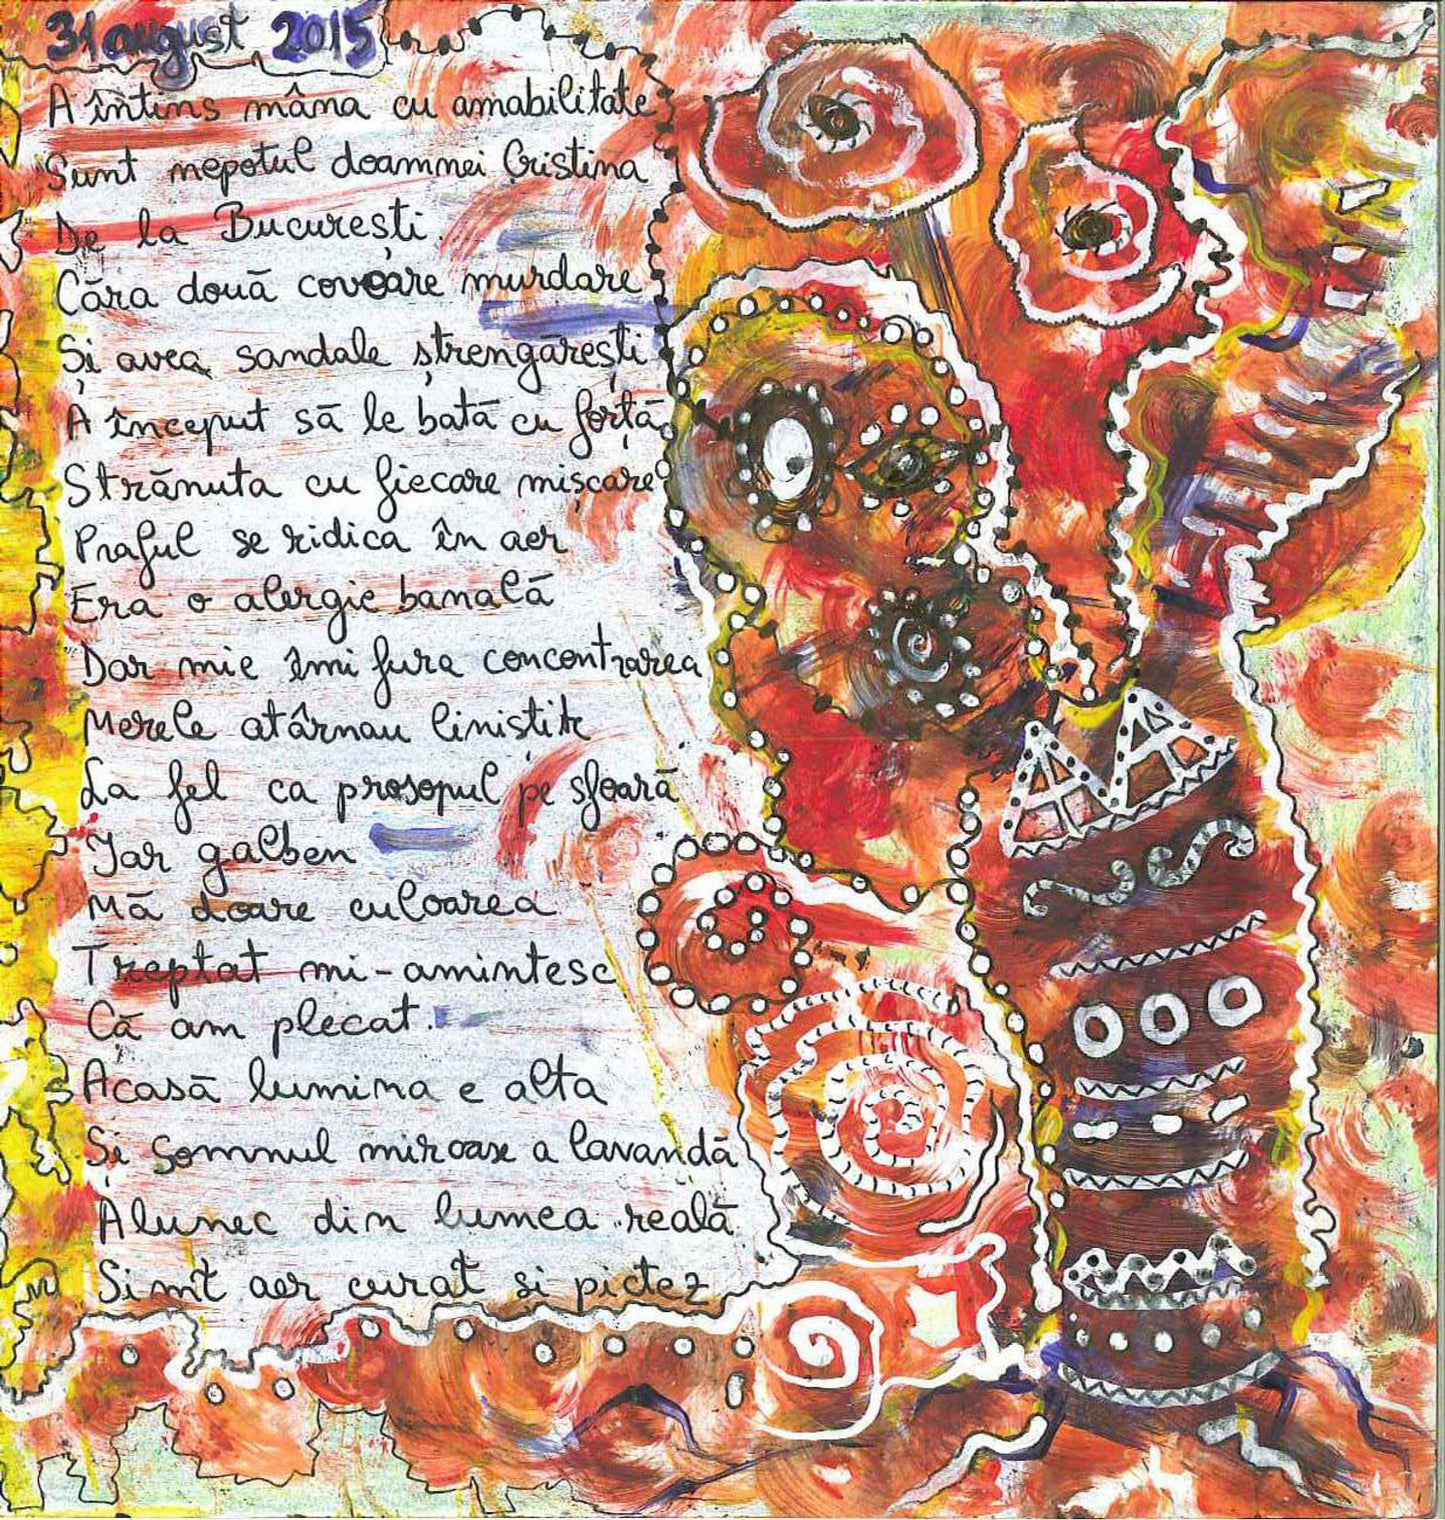 31 august 2015
A întins mâna cu amabilitate
Sunt nepotul doamnei Cristina
De la București
Căra două covoare murdare
Și avea sandale ștrengărești
A început să le bată cu forță
Strănuta cu fiecare mișcare
Praful se ridica în aer
Era o alergie banală
Dar mie îmi fura concentrarea
Merele atârnau liniștite
La fel ca prosopul pe sfoară
Iar galben
Mă doare culoarea
Treptat mi-amintesc
Că am plecat.
Acasă lumina e alta
Și somnul miroase a lavandă
Alunec din lumea reală
Simt aer curat și pictez